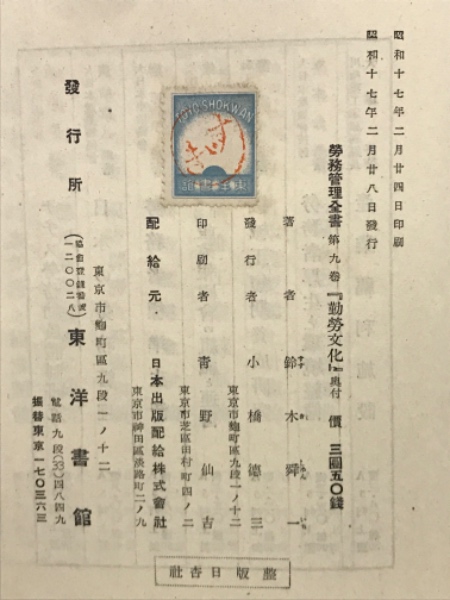 昭和十七年二月廿四日印刷
昭和十七年二月廿八日發行
勞務管理全書 第九卷 『勤勞文化』奧付
價 三圓五〇錢
著者 鈴木舜一
發行者 小橋德三
東京市麴町區九段一ノ十二
印刷者 靑野仙吉
東京市芝區田村町四ノ二
配給元 日本出版配給株式會社
東京市神田區淡路町二ノ九
發行所 東洋書館
東京市麴町區九段一ノ十二
一二〇〇二八
電話九段(33)四八四九
振替東京一七〇三六三
TOYO-SHOKWAN